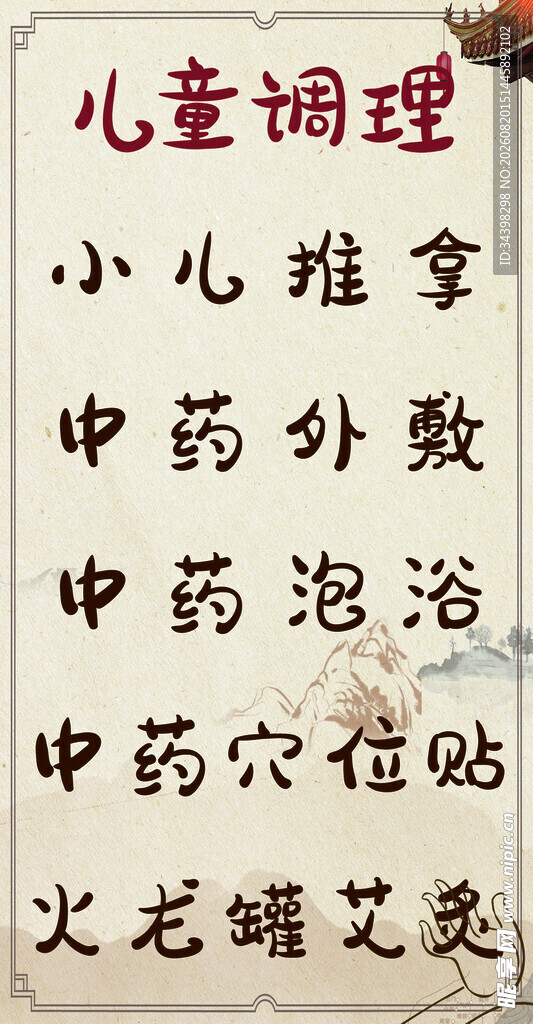 儿童调理
小儿推拿
中药外敷
中药泡浴
中药穴位贴
火龙罐艾灸
ID:34398298 NO:20260820151445892102
昵享网 www.nipic.cn